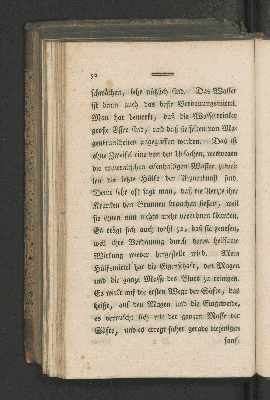 50
schwächen, sehr nützlich sind. Das Wasser
ist dann auch das beste Verdauungsmittel.
Man hat bemerkt, daß die Wassertrinker
große Esser sind, und daß sie selten von Ma-
genkrankheiten angegriffen werden. Das ist
ohne Zweifel eine von den Ursachen, weswegen
die mineralischen eisenhaltigen Wasser zuwei-
len die letzte Hülfe der Arzneikunst sind.
Denn sehr oft sagt man, daß die Aerzte ihre
Kranken den Brunnen brauchen liessen, weil
sie ihnen nun nichts mehr verordnen könnten.
Es trägt sich auch wohl zu, daß sie genesen,
weil ihre Verdauung durch deren heilsame
Wirkung wieder hergestellt wird. Mein
Hülfsmittel hat die Eigenschaft, den Magen
und die ganze Masse des Bluts zu reinigen.
Es wirkt auf die ersten Wege der Säfte, das
heißt, auf den Magen und die Eingeweide,
es vermischt sich mit der ganzen Masse der
Säfte, und es erregt sicher gerade diejenigen
sanf-